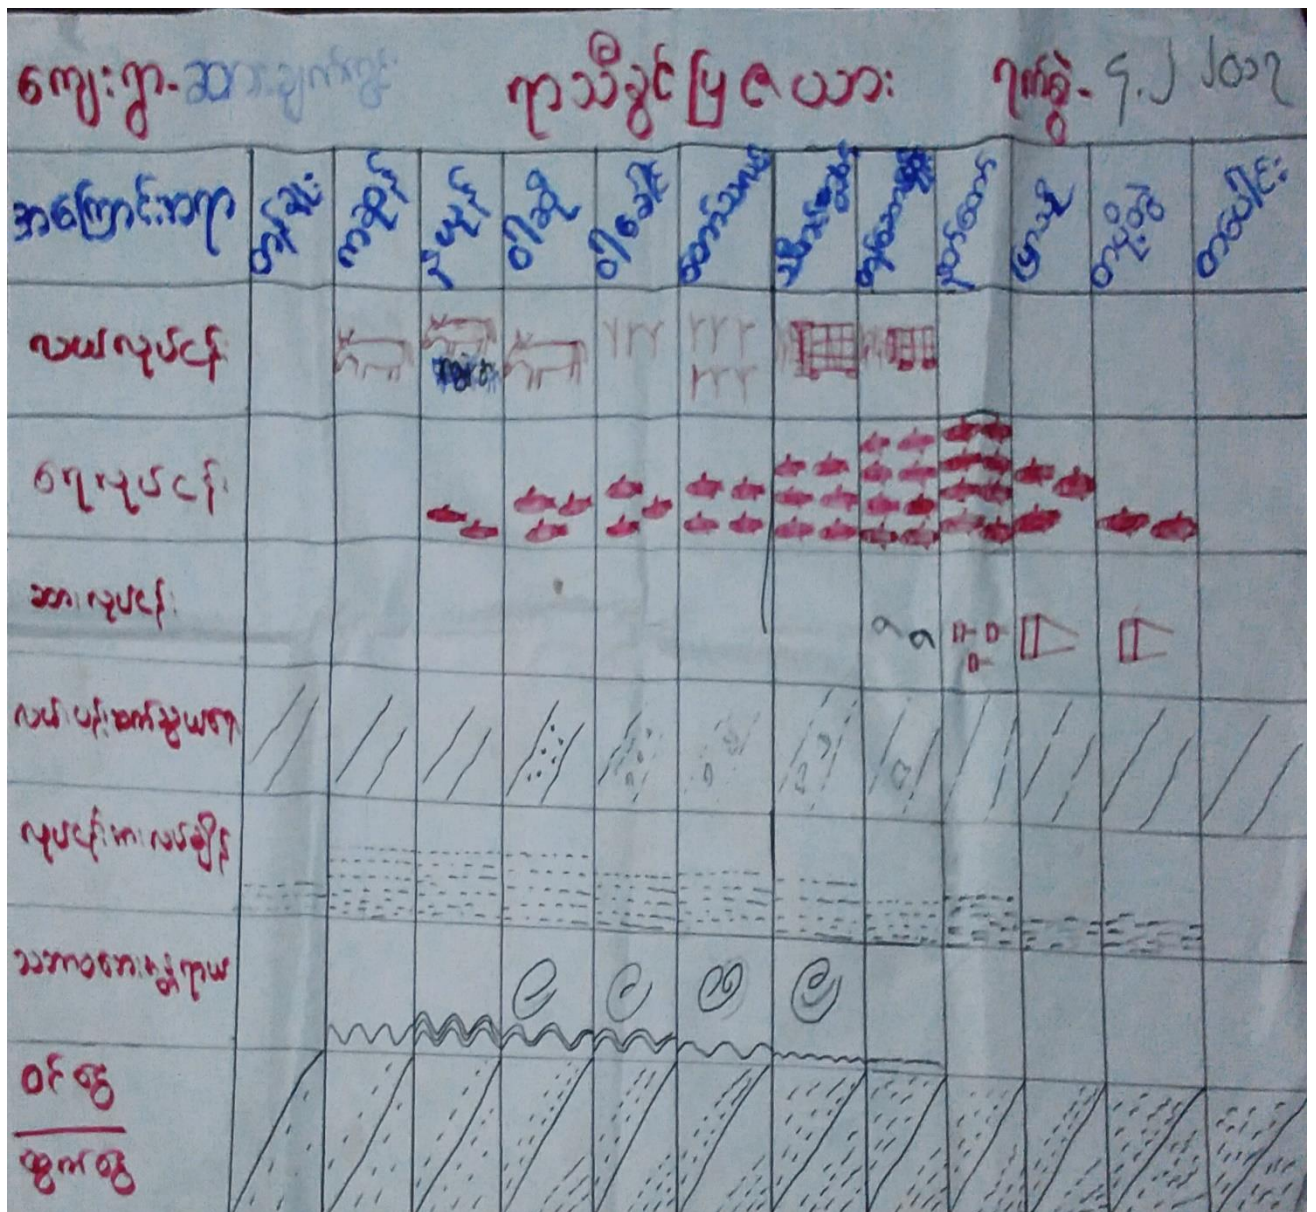 ကျေးရွာ- ဆားချက်ကုန်း ရာသီခွင်ပြဇယား ရက်စွဲ-
အကြောင်းအရာ ကဆုန် နယုန် ဝါဆို ဝါခေါင် တော်သလင်း သီတင်းကျွတ် တန်ဆောင်မုန်း နတ်တော် ပြာသို တပို့တွဲ တပေါင်း
လယ်လုပ်ငန်း
ရေလုပ်ငန်း
ဆားလုပ်ငန်း
လမ်းပန်းဆက်သွယ်ရေး
လုပ်ငန်းအားလပ်ချိန်
သဘာဝဘေးအန္တရာယ်
ဝင်ငွေ
ထွက်ငွေ